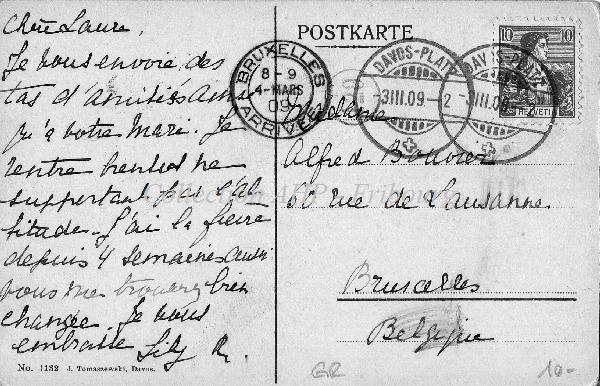 Chère Laure,
Je vous envoie des
tas d'amitiés ainsi
qu'à votre Mari. Je
rentre bientôt ne
supportant pas l'al
titude. J'ai la fièvre
depuis 4 semaines aussi
vous me trouverez bien
changée. Je vous
embrasse Lily R.
No. 1182 J. Tomaszewski, Davos.
POSTKARTE
BRUXELLES
8 - 9
4 - MARS
09
ARRIVÉE
DAVOS-PLATZ
-3.III.09- 2
DAVOS-PLATZ
-3.III.09-
10 10
HELVETIA
Madame
Alfred Bouvier
50 rue de Lausanne
Bruxelles
Belgique
GR
10-